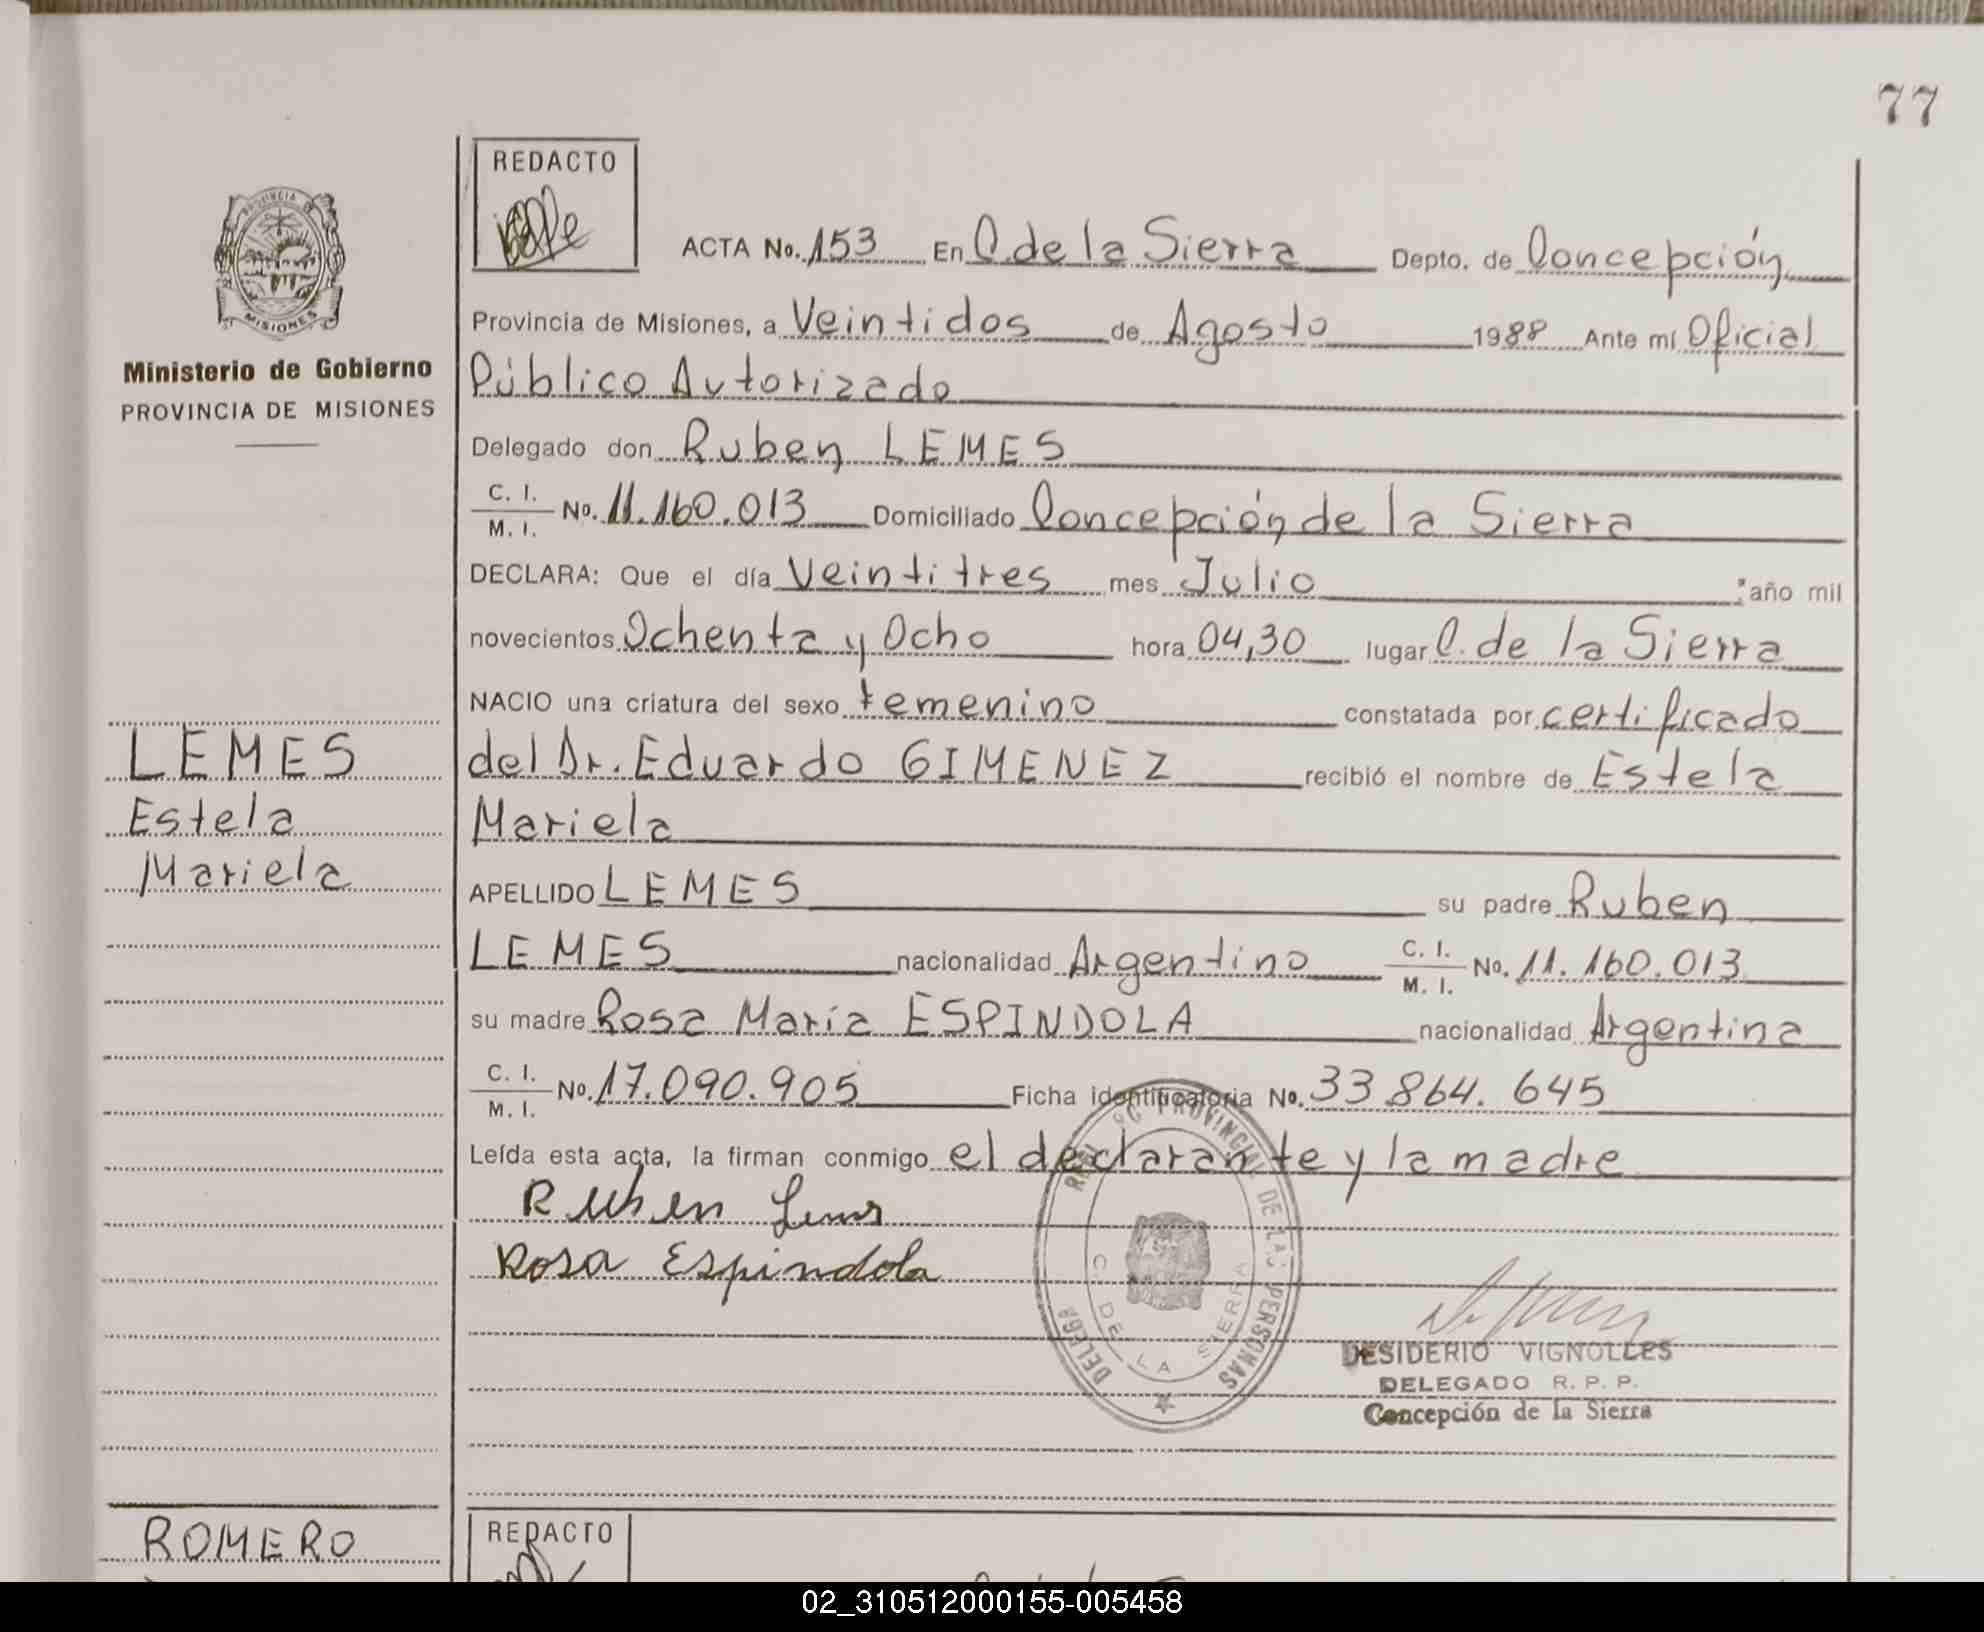 77
REDACTO
PROVINCIA DE
MISIONES
Ministerio de Gobierno
PROVINCIA DE MISIONES
ACTA No. 153 En C. de la Sierra Depto. de Concepción
Provincia de Misiones, a Veintidos de Agosto 1988 Ante mí Oficial
Público Autorizado
Delegado don Ruben LEMES
C. I.
M. I. No. 11.160.013 Domiciliado Concepción de la Sierra
DECLARA: Que el día Veintitres mes Julio año mil
novecientos Ochenta y Ocho hora 04,30 lugar C. de la Sierra
NACIO una criatura del sexo femenino constatada por certificado
del Dr. Eduardo GIMENEZ recibió el nombre de Estela
Mariela
APELLIDO LEMES su padre Ruben
LEMES nacionalidad Argentino C. I. M. I. No. 11.160.013
su madre Rosa María ESPINDOLA nacionalidad Argentina
C. I.
M. I. No. 17.090.905 Ficha identificatoria No. 33.864.645
Leída esta acta, la firman conmigo el declarante y la madre
Ruben Lemes
Rosa Espindola
LEMES
Estela
Mariela
PROVINCIAL DE LAS PERSONAS
C. DE LA SIERRA
DESIDERIO VIGNOLLES
DELEGADO R. P. P.
Concepción de la Sierra
ROMERO
REDACTO
02_310512000155-005458